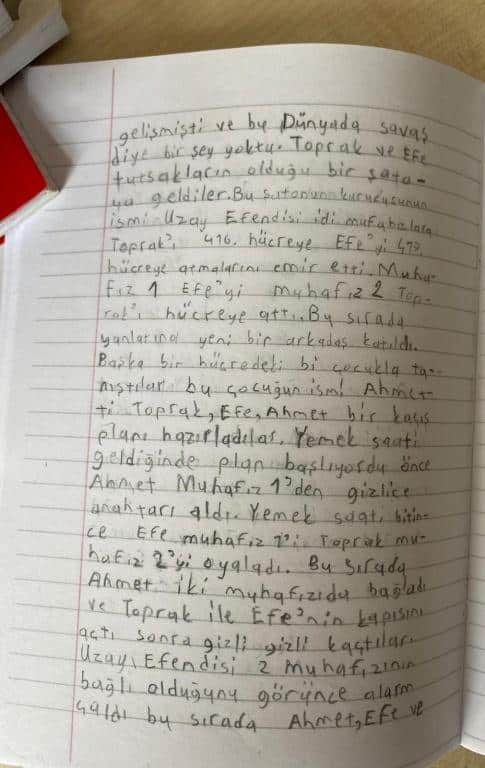 gelişmişti ve bu Dünyada savaş
diye bir şey yoktu. Toprak ve Efe
tutsakların olduğu bir şato-
ya geldiler. Bu şatonun kurucusunun
ismi Uzay Efendisi idi mufahızlara
Toprak'ı 416. hücreye Efe'yi
hücreye atmalarını emir etti. Muha-
fız 1 Efe'yi muhafız 2 Top-
rak'ı hücreye attı. Bu sırada
yanlarına yeni bir arkadaş katıldı.
Başka bir hücredeki bi çocukla ta-
nıştılar bu çocuğun ismi Ahmet-
ti Toprak, Efe, Ahmet bir kaçış
planı hazırladılar. Yemek saati
geldiğinde plan başlıyordu önce
Ahmet Muhafız 1'den gizlice
anahtarı aldı. Yemek saati bitin-
ce Efe muhafız 1'i Toprak mu-
hafız 2'yi oyaladı. Bu sırada
Ahmet iki muhafızıda bağladı
ve Toprak ile Efe'nin kapısını
açtı sonra gizli gizli kaçtılar.
Uzay Efendisi 2 muhafızının
bağlı olduğunu görünce alarm
çaldı bu sırada Ahmet, Efe ve